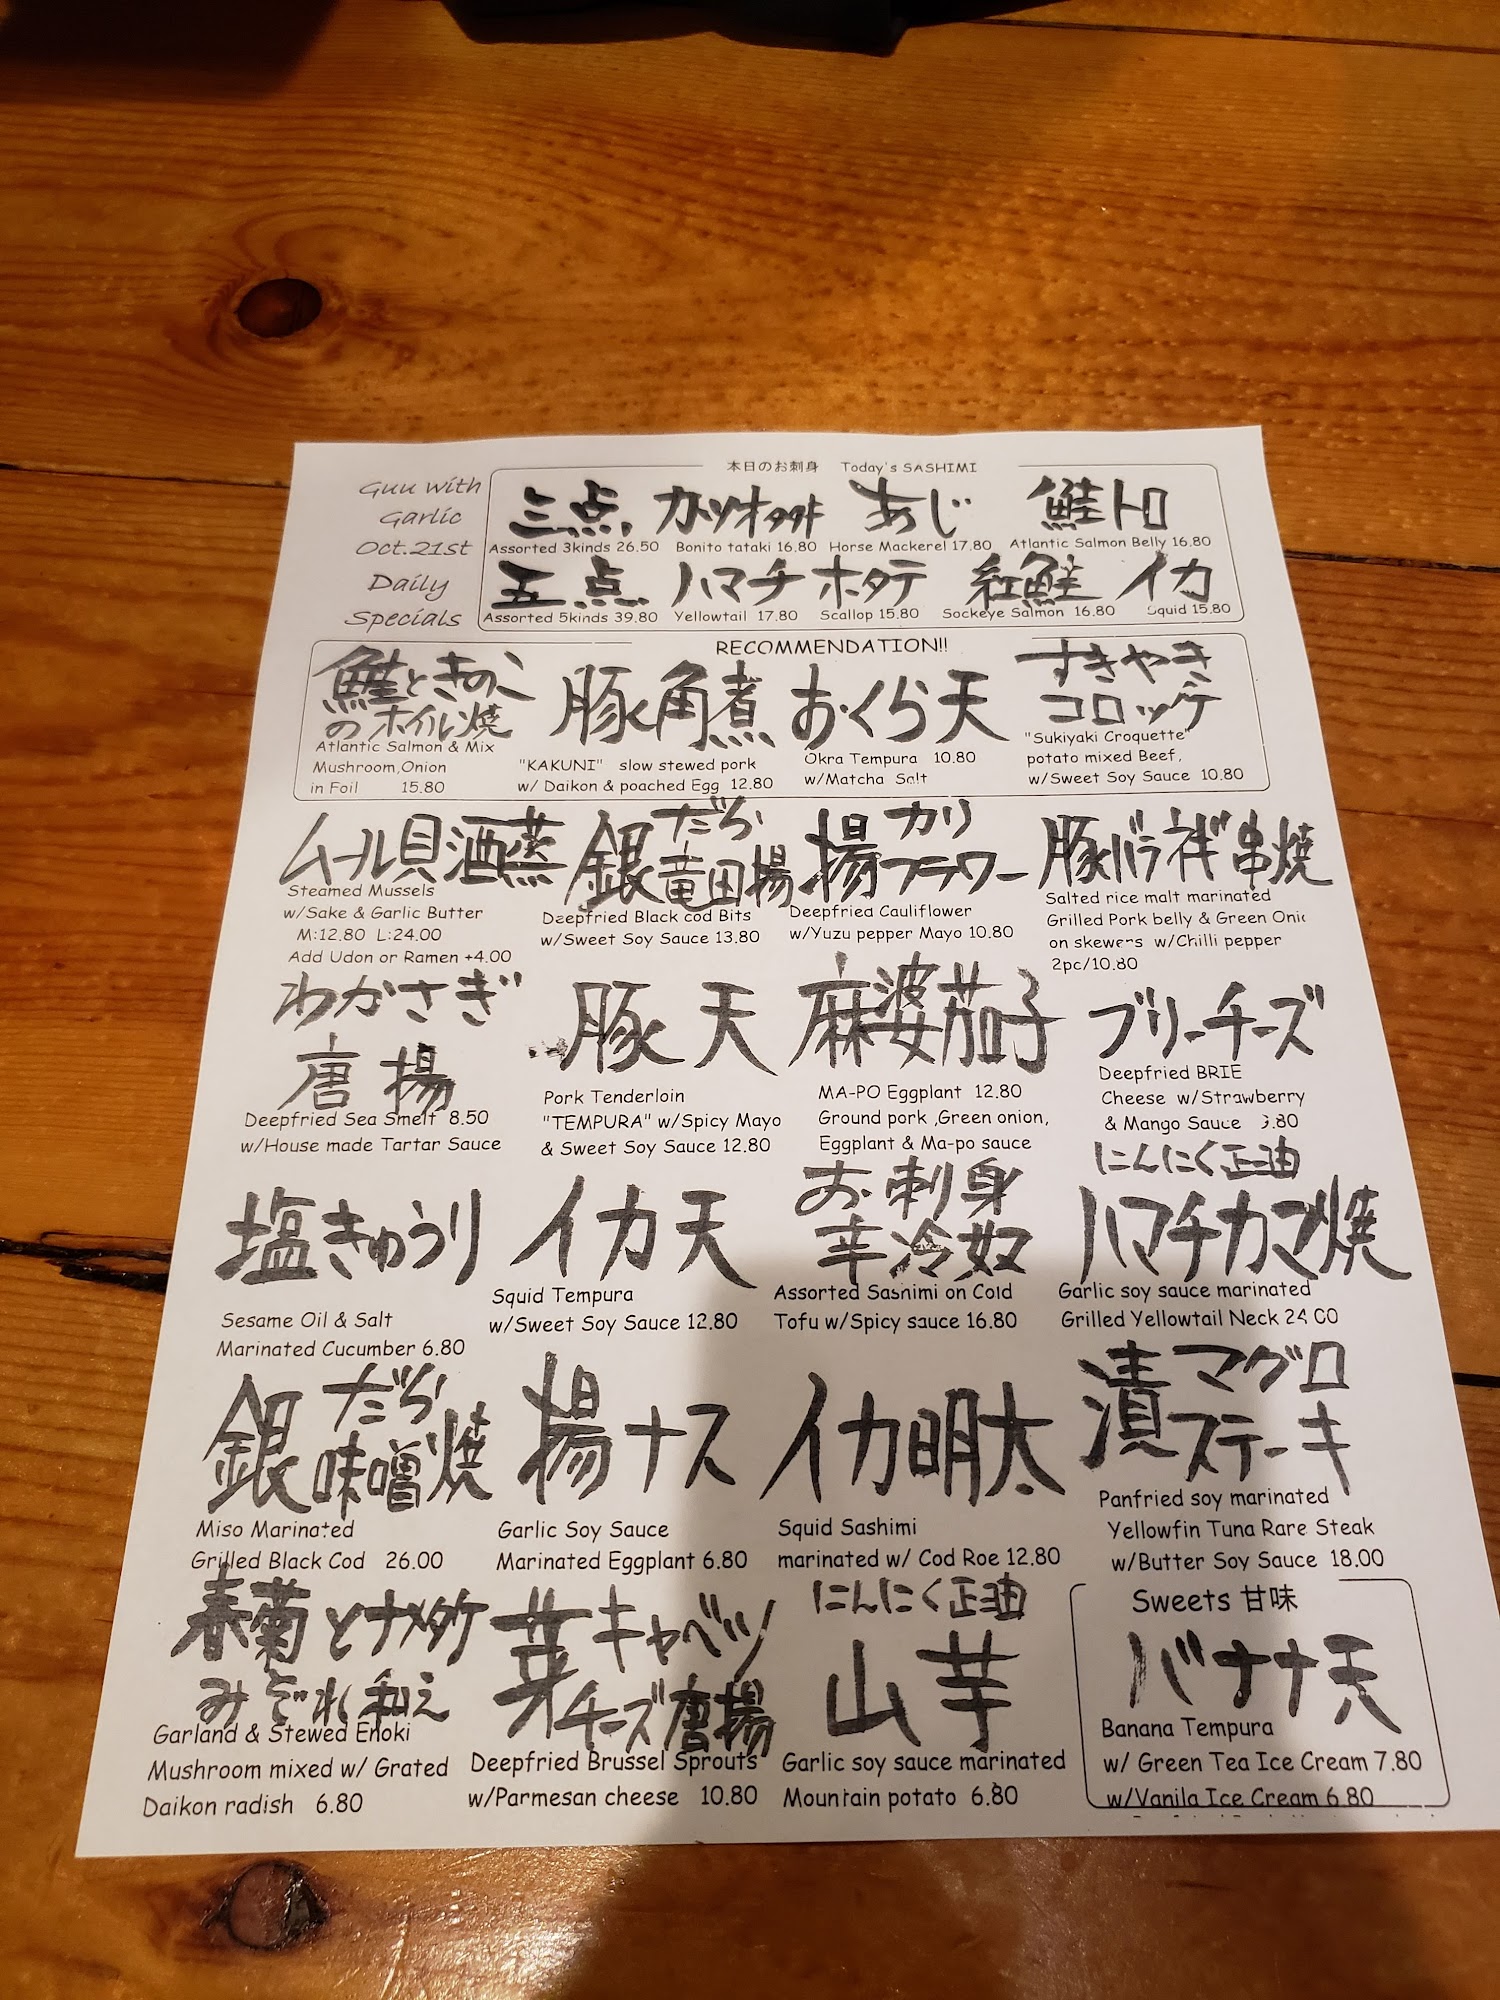 Guu with
Garlic
Oct.21st
Daily
Specials
本日のお刺身 Today's SASHIMI
三点
Assorted 3kinds 26.50
カツオタタキ
Bonito tataki 16.80
あじ
Horse Mackerel 17.80
鮭トロ
Atlantic Salmon Belly 16.80
五点
Assorted 5kinds 39.80
ハマチ
Yellowtail 17.80
ホタテ
Scallop 15.80
紅鮭
Sockeye Salmon 16.80
イカ
Squid 15.80
RECOMMENDATION!!
鮭ときのこ
のホイル焼
Atlantic Salmon & Mix
Mushroom,Onion
in Foil 15.80
豚角煮
"KAKUNI" slow stewed pork
w/ Daikon & poached Egg 12.80
おくら天
Okra Tempura 10.80
w/Matcha Salt
すきやき
コロッケ
"Sukiyaki Croquette"
potato mixed Beef,
w/Sweet Soy Sauce 10.80
ムール貝酒蒸
Steamed Mussels
w/Sake & Garlic Butter
M:12.80 L:24.00
Add Udon or Ramen +4.00
銀だら
竜田揚
Deepfried Black cod Bits
w/Sweet Soy Sauce 13.80
揚カリ
フラワー
Deepfried Cauliflower
w/Yuzu pepper Mayo 10.80
豚バラネギ串焼
Salted rice malt marinated
Grilled Pork belly & Green Onic
on skewers w/Chilli pepper
2pc/10.80
わかさぎ
唐揚
Deepfried Sea Smelt 8.50
w/House made Tartar Sauce
豚天
Pork Tenderloin
"TEMPURA" w/Spicy Mayo
& Sweet Soy Sauce 12.80
麻婆茄子
MA-PO Eggplant 12.80
Ground pork ,Green onion,
Eggplant & Ma-po sauce
ブリーチーズ
Deepfried BRIE
Cheese w/Strawberry
& Mango Sauce
塩きゅうり
Sesame Oil & Salt
Marinated Cucumber 6.80
イカ天
Squid Tempura
w/Sweet Soy Sauce 12.80
お刺身
辛冷奴
Assorted Sashimi on Cold
Tofu w/Spicy sauce 16.80
にんにく正油
ハマチカマ焼
Garlic soy sauce marinated
Grilled Yellowtail Neck 24.00
銀だら
味噌焼
Miso Marinated
Grilled Black Cod 26.00
揚ナス
Garlic Soy Sauce
Marinated Eggplant 6.80
イカ明太
Squid Sashimi
marinated w/ Cod Roe 12.80
漬マグロ
ステーキ
Panfried soy marinated
Yellowfin Tuna Rare Steak
w/Butter Soy Sauce 18.00
春菊とナメタケ
みぞれ和え
Garland & Stewed Enoki
Mushroom mixed w/ Grated
Daikon radish 6.80
芽キャベツ
チーズ唐揚
Deepfried Brussel Sprouts
w/Parmesan cheese 10.80
にんにく正油
山芋
Garlic soy sauce marinated
Mountain potato 6.80
Sweets 甘味
バナナ天
Banana Tempura
w/ Green Tea Ice Cream 7.80
w/Vanila Ice Cream 6.80